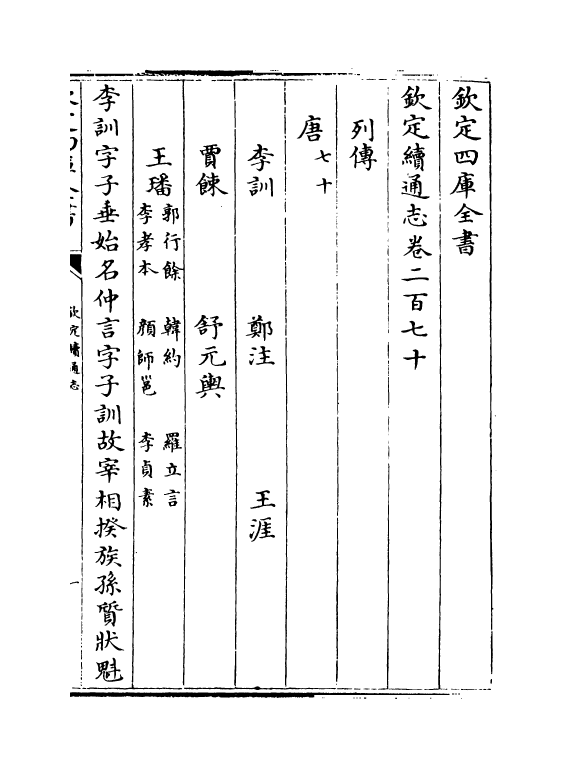 欽定四庫全書
欽定續通志卷二百七十
列傳
唐七十
李訓 鄭注 王涯
賈餗 舒元輿
王璠 郭行餘 韓約 羅立言
李孝本 顏師邕 李貞素
李訓字子垂始名仲言字子訓故宰相揆族孫質狀魁
欽定續通志
一